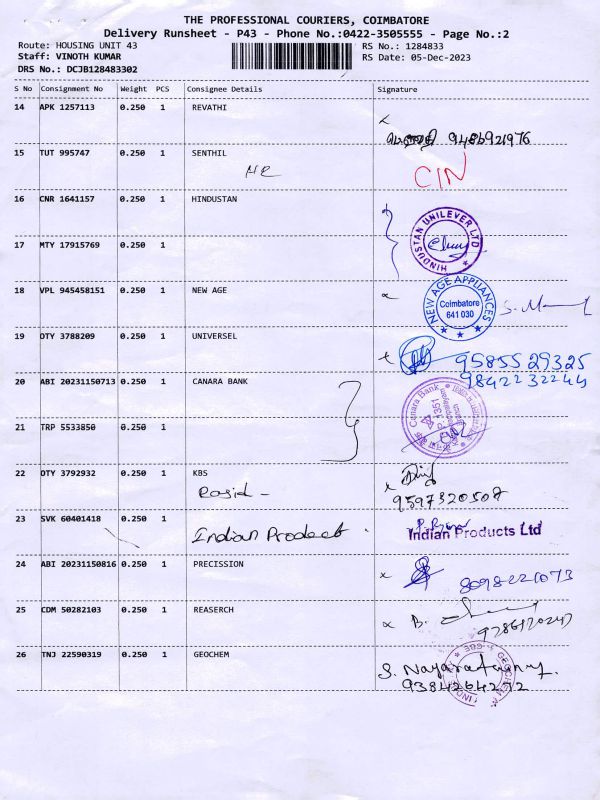 THE PROFESSIONAL COURIERS, COIMBATORE
Delivery Runsheet - P43 - Phone No.:0422-3505555 - Page No.:2
Route: HOUSING UNIT 43 RS No.: 1284833
Staff: VINOTH KUMAR RS Date: 05-Dec-2023
DRS No.: DCJB128483302
S No Consignment No Weight PCS Consignee Details Signature
14 APK 1257113 0.250 1 REVATHI
9486921976
15 TUT 995747 0.250 1 SENTHIL
CIN
16 CNR 1641157 0.250 1 HINDUSTAN
HINDUSTAN UNILEVER LTD
17 MTY 17915769 0.250 1
18 VPL 945458151 0.250 1 NEW AGE
NEW AGE APPLIANCES
Coimbatore
641 030
19 OTY 3788209 0.250 1 UNIVERSEL
9585529325
9842232244
20 ABI 20231150713 0.250 1 CANARA BANK
Canara Bank
21 TRP 5533850 0.250 1
22 OTY 3792932 0.250 1 KBS
Rasid -
9597320508
23 SVK 60401418 0.250 1
Indian Prodect
Indian Products Ltd
24 ABI 20231150816 0.250 1 PRECISSION
8098221073
25 CDM 50282103 0.250 1 REASERCH
B.
26 TNJ 22590319 0.250 1 GEOCHEM
GEOCHEM
9384264272